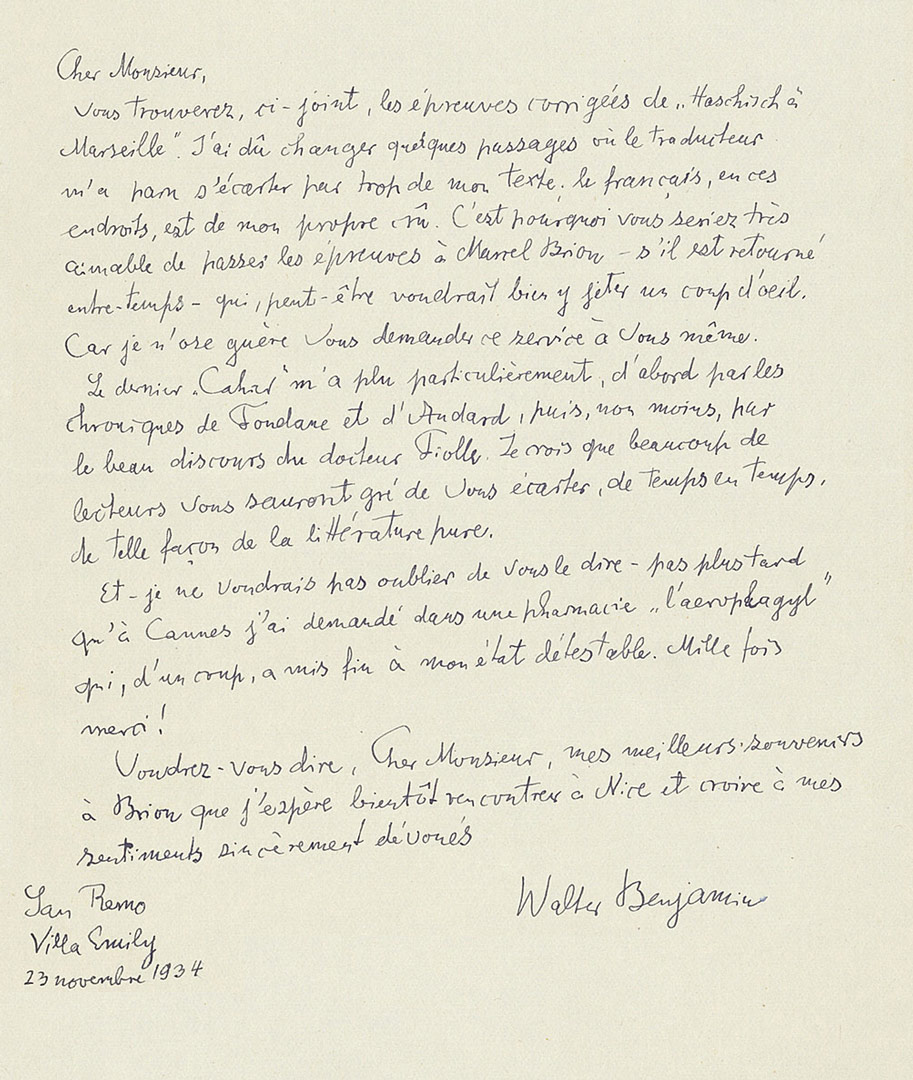 Cher Monsieur,
Vous trouverez, ci-joint, les épreuves corrigées de „Haschisch à
Marseille". J'ai dû changer quelques passages où le traducteur
m'a paru s'écarter par trop de mon texte. le français, en ces
endroits, est de mon propre crû. C'est pourquoi vous seriez très
aimable de passer les épreuves à Marcel Brion – s'il est retourné
entre-temps – qui, peut-être voudrait bien y jeter un coup d'oeil.
Car je n'ose guère Vous demander ce service à Vous même.
Le dernier „Cahier" m'a plu particulièrement, d'abord par les
chroniques de Fondane et d'Audard, puis, non moins, par
le beau discours du docteur Fiolle. Je crois que beaucoup de
lecteurs Vous sauront gré de Vous écarter, de temps en temps,
de telle façon de la littérature pure.
Et – je ne voudrais pas oublier de vous le dire – pas plus tard
qu'à Cannes j'ai demandé dans une pharmacie „l'aerophagyl"
qui, d'un coup, a mis fin à mon état détestable. Mille fois
merci!
Voudrez-vous dire, Cher Monsieur, mes meilleurs souvenirs
à Brion que j'espère bientôt rencontrer à Nice et croire à mes
sentiments sincèrement dévoués
Walter Benjamin
San Remo
Villa Emily
23 novembre 1934